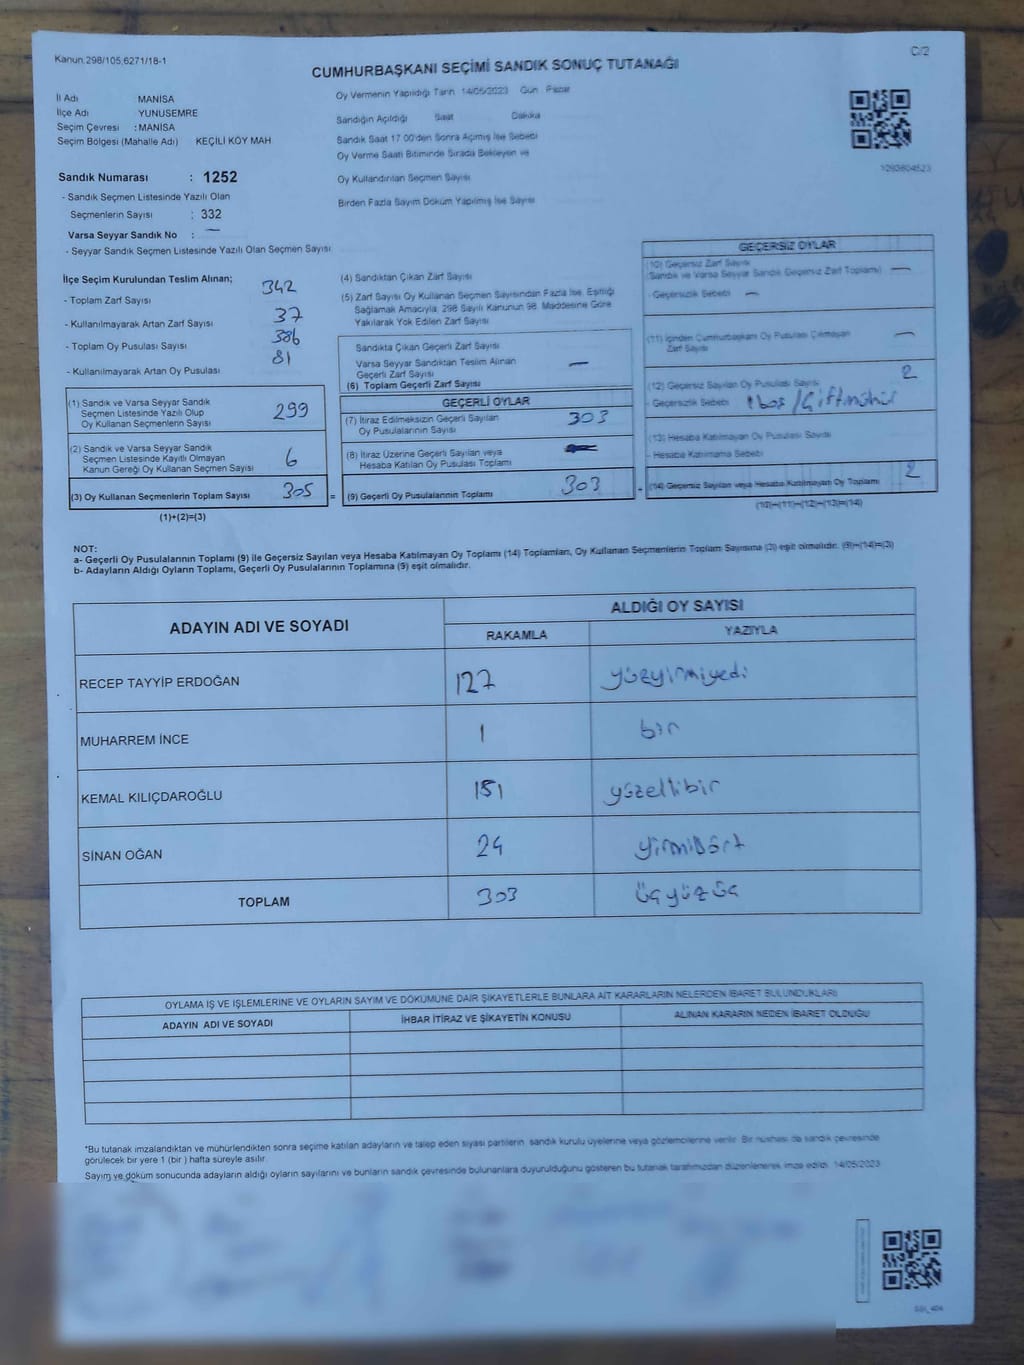 Kanun.298/105,6271/18-1
C/2
CUMHURBAŞKANI SEÇİMİ SANDIK SONUÇ TUTANAĞI
İl Adı MANİSA
İlçe Adı YUNUSEMRE
Seçim Çevresi : MANİSA
Seçim Bölgesi (Mahalle Adı) KEÇİLİ KÖY MAH
Sandık Numarası : 1252
- Sandık Seçmen Listesinde Yazılı Olan
Seçmenlerin Sayısı : 332
Varsa Seyyar Sandık No : —
- Seyyar Sandık Seçmen Listesinde Yazılı Olan Seçmen Sayısı
Oy Vermenin Yapıldığı Tarih 14/05/2023 Gün : Pazar
Sandığın Açıldığı Saat Dakika
Sandık Saat 17:00'den Sonra Açılmış İse Sebebi
Oy Verme Saati Bitiminde Sırada Bekleyen ve
Oy Kullandırılan Seçmen Sayısı
Birden Fazla Sayım Döküm Yapılmış İse Sayısı
1093604523
İlçe Seçim Kurulundan Teslim Alınan;
- Toplam Zarf Sayısı 342
- Kullanılmayarak Artan Zarf Sayısı 37
- Toplam Oy Pusulası Sayısı 386
- Kullanılmayarak Artan Oy Pusulası 81
(1) Sandık ve Varsa Seyyar Sandık
Seçmen Listesinde Yazılı Olup
Oy Kullanan Seçmenlerin Sayısı 299
(2) Sandık ve Varsa Seyyar Sandık
Seçmen Listesinde Kayıtlı Olmayan
Kanun Gereği Oy Kullanan Seçmen Sayısı 6
(3) Oy Kullanan Seçmenlerin Toplam Sayısı 305 =
(1)+(2)=(3)
(4) Sandıktan Çıkan Zarf Sayısı
(5) Zarf Sayısı Oy Kullanan Seçmen Sayısından Fazla İse, Eşitliği
Sağlamak Amacıyla, 298 Sayılı Kanunun 98. Maddesine Göre
Yakılarak Yok Edilen Zarf Sayısı
Sandıkta Çıkan Geçerli Zarf Sayısı
Varsa Seyyar Sandıktan Teslim Alınan
Geçerli Zarf Sayısı —
(6) Toplam Geçerli Zarf Sayısı
GEÇERLİ OYLAR
(7) İtiraz Edilmeksizin Geçerli Sayılan
Oy Pusulalarının Sayısı 303
(8) İtiraz Üzerine Geçerli Sayılan veya
Hesaba Katılan Oy Pusulası Toplamı
(9) Geçerli Oy Pusulalarının Toplamı 303
GEÇERSİZ OYLAR
(10) Geçersiz Zarf Sayısı
(Sandık ve Varsa Seyyar Sandık Geçersiz Zarf Toplamı) —
- Geçersizlik Sebebi —
(11) İçinden Cumhurbaşkanı Oy Pusulası Çıkmayan
Zarf Sayısı —
(12) Geçersiz Sayılan Oy Pusulası Sayısı 2
- Geçersizlik Sebebi 1 boş / Çiftmühür
(13) Hesaba Katılmayan Oy Pusulası Sayısı
- Hesaba Katılmama Sebebi
(14) Geçersiz Sayılan veya Hesaba Katılmayan Oy Toplamı 2
(10)+(11)+(12)+(13)=(14)
NOT:
a- Geçerli Oy Pusulalarının Toplamı (9) ile Geçersiz Sayılan veya Hesaba Katılmayan Oy Toplamı (14) Toplamları, Oy Kullanan Seçmenlerin Toplam Sayısına (3) eşit olmalıdır. (9)+(14)=(3)
b- Adayların Aldığı Oyların Toplamı, Geçerli Oy Pusulalarının Toplamına (9) eşit olmalıdır.
ADAYIN ADI VE SOYADI
ALDIĞI OY SAYISI
RAKAMLA YAZIYLA
RECEP TAYYİP ERDOĞAN 127 yüzyirmiyedi
MUHARREM İNCE 1 bir
KEMAL KILIÇDAROĞLU 151 yüzellibir
SİNAN OĞAN 24 yirmidört
TOPLAM 303 üçyüzüç
OYLAMA İŞ VE İŞLEMLERİNE VE OYLARIN SAYIM VE DÖKÜMÜNE DAİR ŞİKAYETLERLE BUNLARA AİT KARARLARIN NELERDEN İBARET BULUNDUKLARI
ADAYIN ADI VE SOYADI İHBAR İTİRAZ VE ŞİKAYETİN KONUSU ALINAN KARARIN NEDEN İBARET OLDUĞU
*Bu tutanak imzalandıktan ve mühürlendikten sonra seçime katılan adayların ve talep eden siyasi partilerin, sandık kurulu üyelerine veya gözlemcilerine verilir. Bir nüshası da sandık çevresinde
görülecek bir yere 1 (bir ) hafta süreyle asılır.
Sayım ve döküm sonucunda adayların aldığı oyların sayılarını ve bunların sandık çevresinde bulunanlara duyurulduğunu gösteren bu tutanak tarafımızdan düzenlenerek imza edildi. 14/05/2023